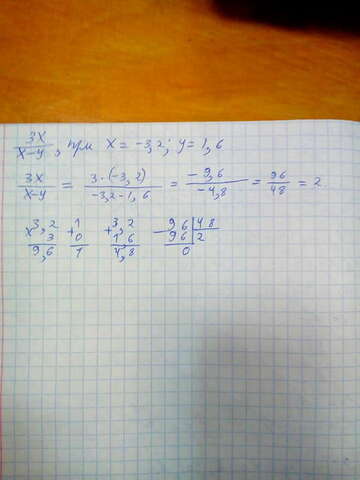 3x/x-y, при x = -3,2; y = 1,6
3x/x-y = 3·(-3,2)/-3,2-1,6 = -9,6/-4,8 = 96/48 = 2
×3,2 +1 +3,2 -96|48
3 0 1 6 96|2
9,6 1 4,8 0